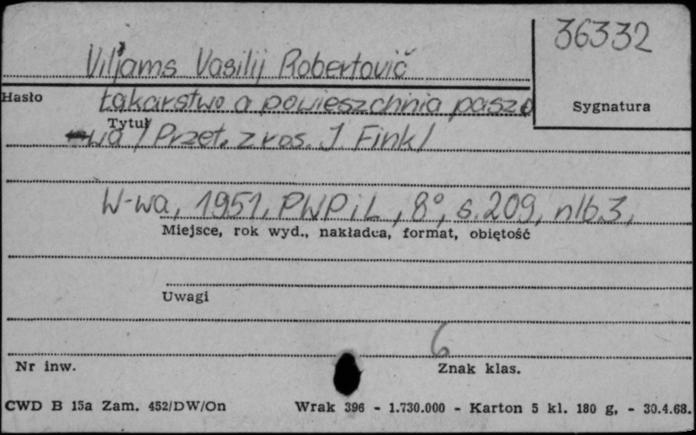 36332
Viljams Vasilij Robertovič
Hasło
Sygnatura
Łąkarstwo a powierzchnia paszo
Tytuł
-wa / Przeł. z ros. J. Fink /
W-wa, 1951, PWPiL, 8°, s. 209, nlb. 3,
Miejsce, rok wyd., nakładca, format, objętość
Uwagi
6
Nr inw.
Znak klas.
CWD B 15a Zam. 452/DW/On Wrak 396 - 1.730.000 - Karton 5 kl. 180 g, - 30.4.68.